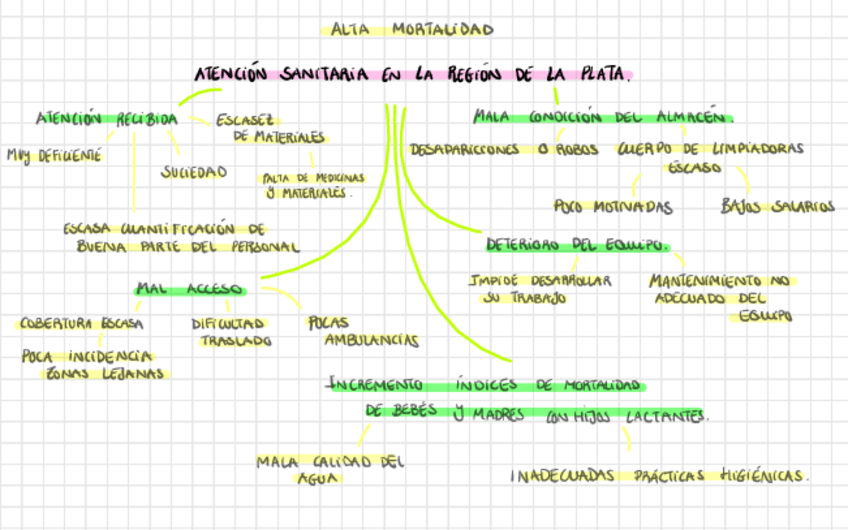 ALTA MORTALIDAD
ATENCIÓN SANITARIA EN LA REGIÓN DE LA PLATA.
ATENCIÓN RECIBIDA
MUY DEFICIENTE
SUCIEDAD
ESCASEZ
DE MATERIALES
FALTA DE MEDICINAS
Y MATERIALES.
ESCASA CUANTIFICACIÓN DE
BUENA PARTE DEL PERSONAL
MALA CONDICIÓN DEL ALMACÉN.
DESAPARICCONES O ROBOS
CUERPO DE LIMPIADORAS
ESCASO
POCO MOTIVADAS
BAJOS SALARIOS
DETERIORO DEL EQUIPO.
IMPIDE DESARROLLAR
SU TRABAJO
MANTENIMIENTO NO
ADECUADO DEL
EQUIPO
MAL ACCESO
COBERTURA ESCASA
POCA INCIDENCIA
ZONAS LEJANAS
DIFICULTAD
TRASLADO
POCAS
AMBULANCIAS
INCREMENTO ÍNDICES DE MORTALIDAD
DE BEBÉS Y MADRES CON HIJOS LACTANTES.
MALA CALIDAD DEL
AGUA
INADECUADAS PRÁCTICAS HIGIÉNICAS.